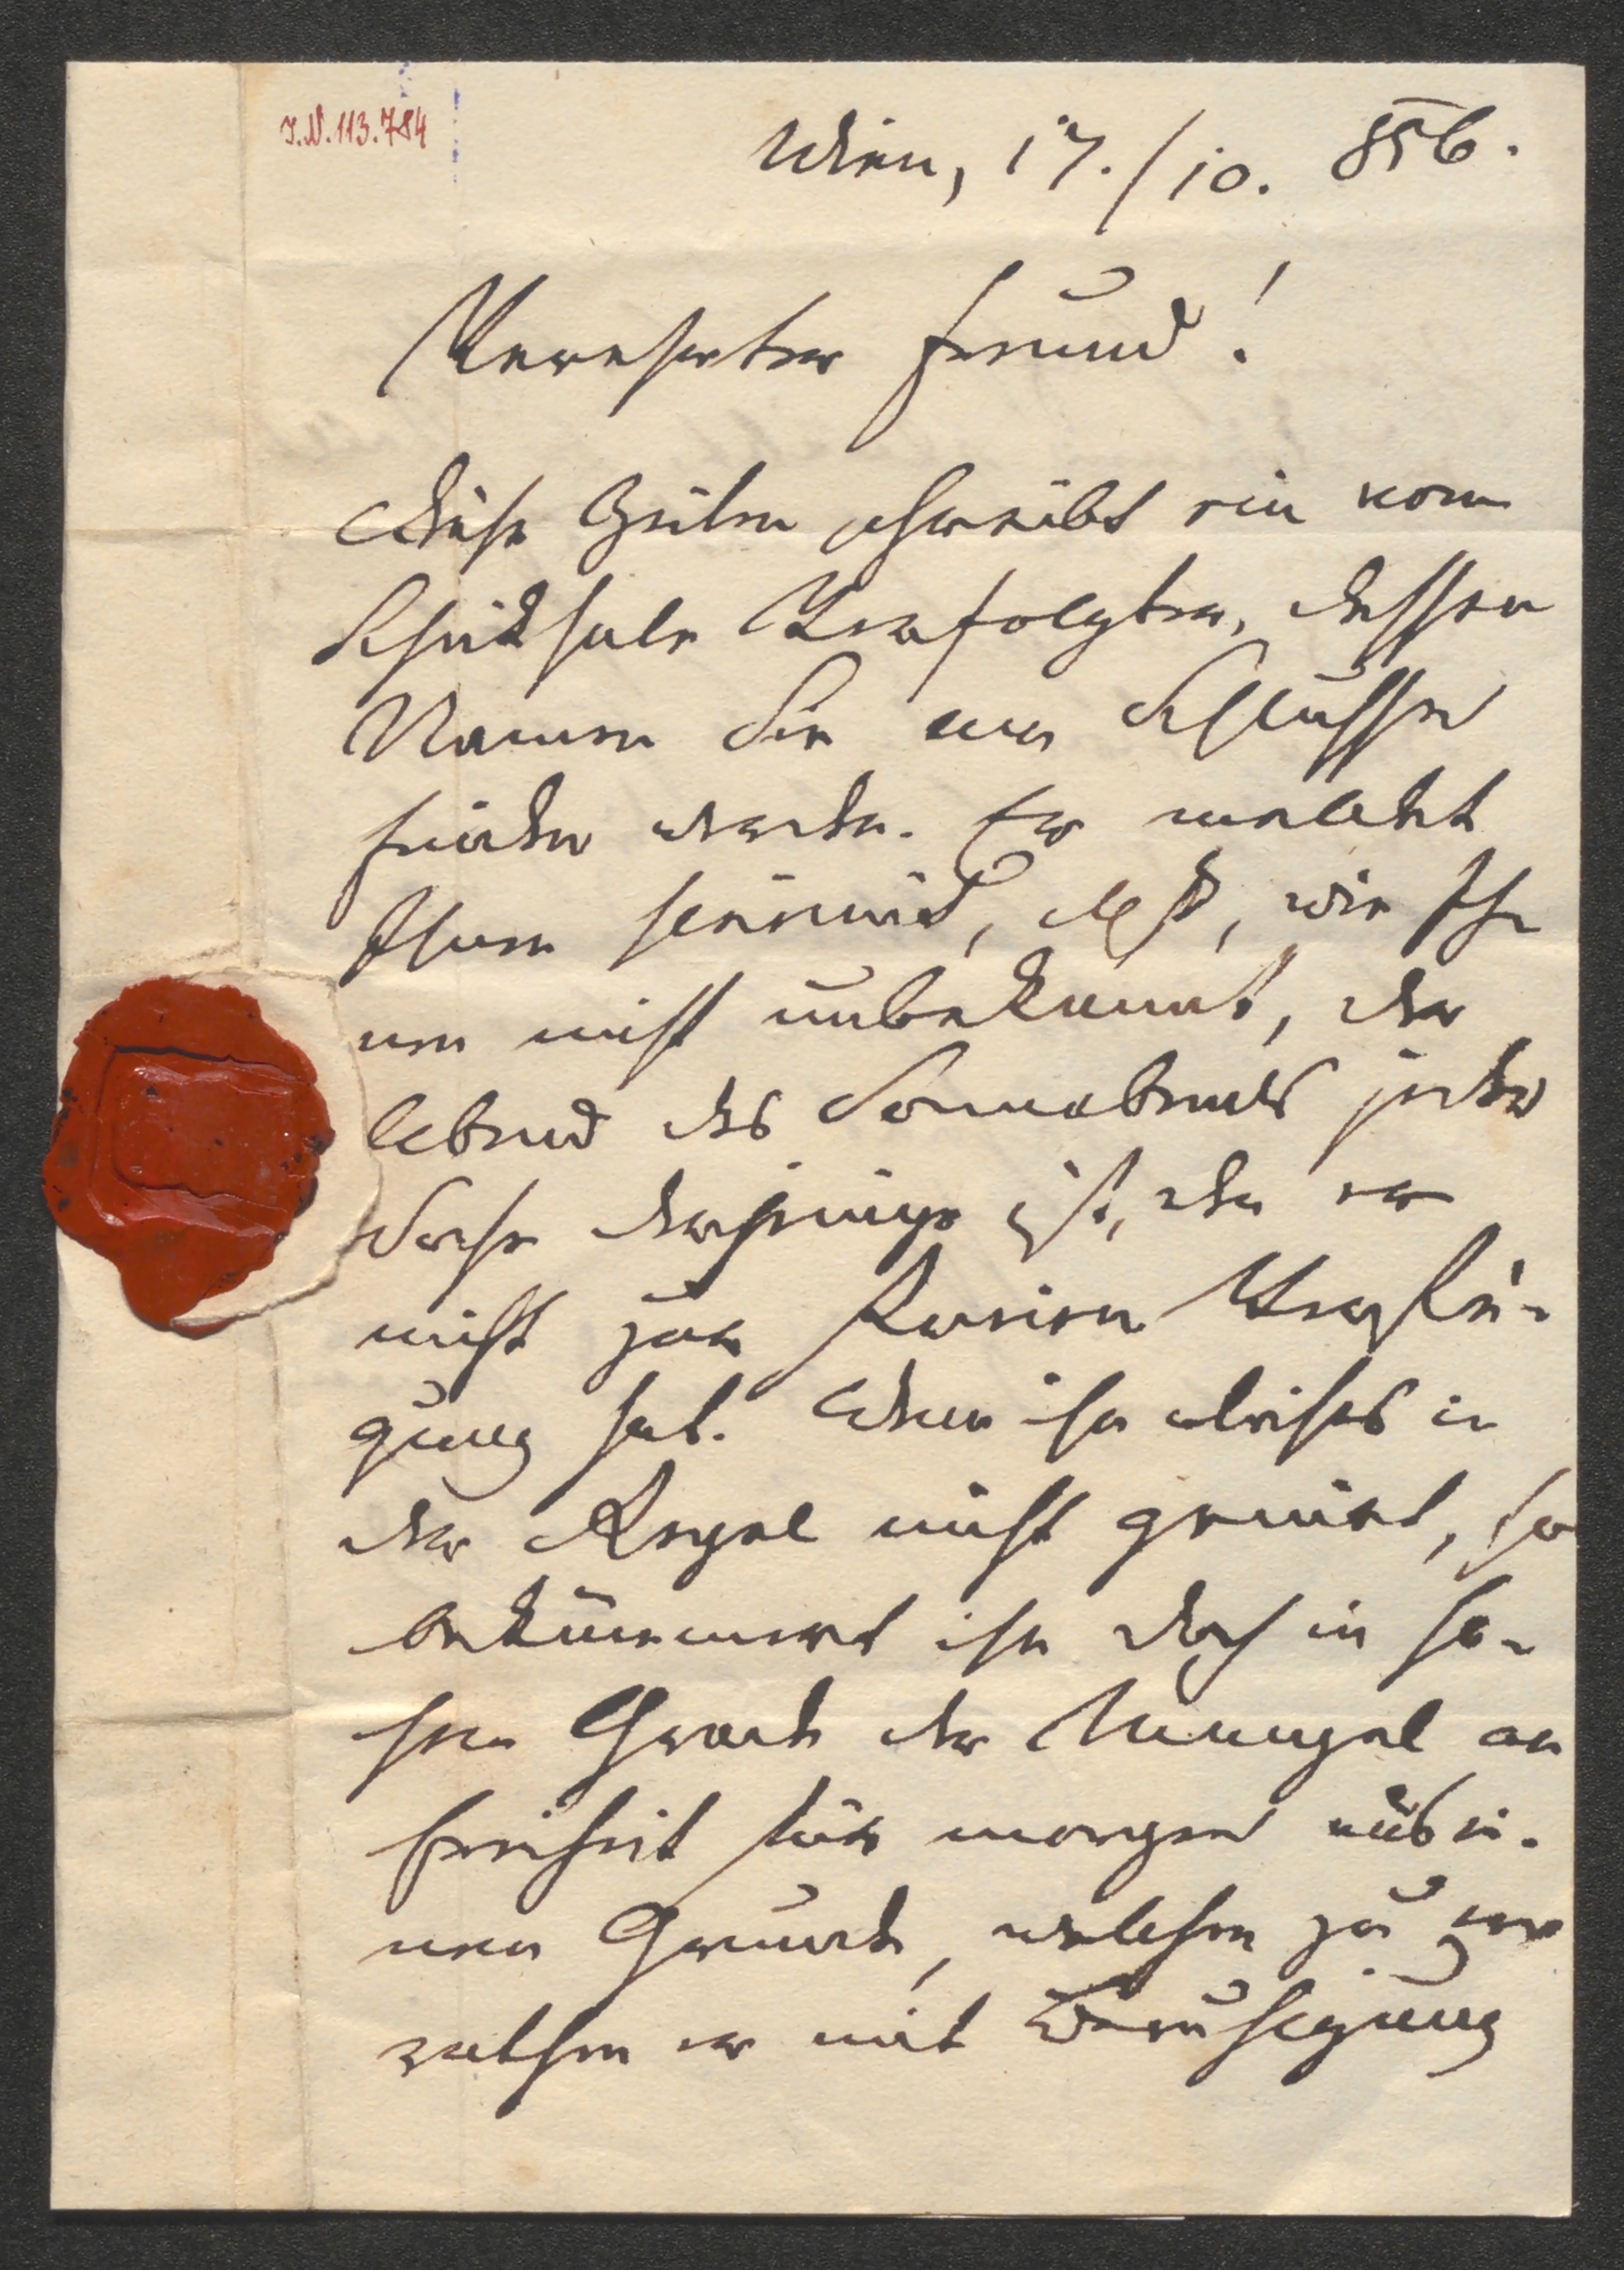 I.N. 113.784
Wien, 17./10. 856.
Verehrter Freund!
Diese Zeilen schreibt ein vom
Schicksale Verfolgter, dessen
Namen Sie am Schlusse
finden werden. Er meldet
Ihnen hiemit, daß, wie Ih-
nen nicht unbekannt, der
Abend des Sonnabends jeder
Woche derjenige ist, den er
nicht zur freien Verfü-
gung hat. Wenn ihn dieses in
der Regel nicht genirt, so
bekümmert ihn doch in ho-
hem Grade der Mangel an
Freiheit für morgen aus ei-
nem Grunde, welchen zu
rathen er mit Beruhigung